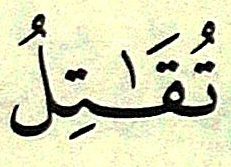 تُقَٰتِلُ